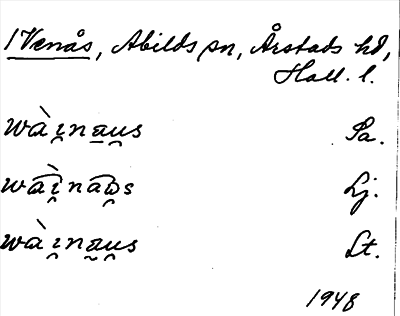 1 Venås, Abilds sn, Årstads hd,
Hall. l.
wài̯na̠u̯s Pa.
wài̯naʊ̯s Lj.
wài̯na̬u̯s Lt.
1948